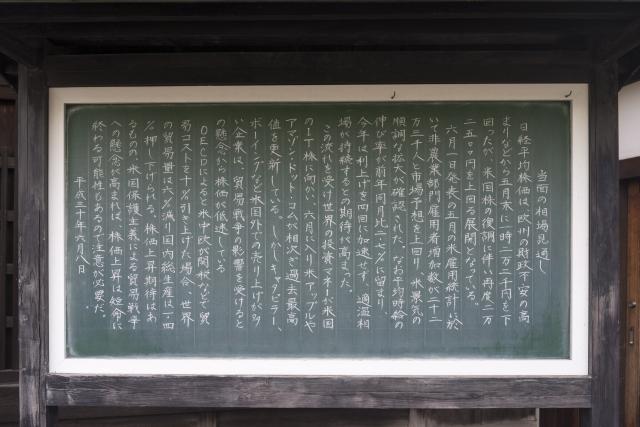 当面の相場見通し
日経平均株価は、欧州の財政不安の高
まりなどから五月末に一時二万二千円を下
回ったが、米国株の復調に伴い再度二万
二五〇〇円を上回る展開となっている。
六月一日発表の五月の米雇用統計に於
いて非農業部門雇用者増加数が二十二
万三千人と市場予想を上回り、米景気の
順調な拡大が確認された。なお平均時給の
伸び率が前年同月比二・七%に留まり、
今年は利上げが四回に加速せず、適温相
場が持続するとの期待が高まった。
この流れを受け世界の投資マネーが米国
のIT株に向かい、六月に入り米アップルや
アマゾン・ドット・コムが相次ぎ過去最高
値を更新している。しかしキャタピラー、
ボーイングなど米国外での売り上げが多
い企業は、貿易戦争の影響を受けると
の懸念から株価が低迷している
OECDによると米中欧が関税などで貿
易コストを十%引き上げた場合、世界
の貿易量は六%減り国内総生産は一・四
%押し下げられる。株価上昇期待はあ
るものの、米国保護主義による貿易戦争
への懸念が高まれば、株価上昇は短命に
終わる可能性もあるので注意が必要だ。
平成三十年六月八日